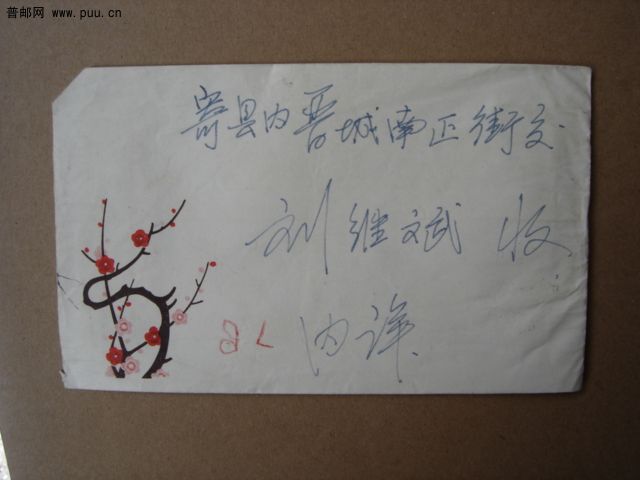 普邮网 www.puu.cn
寄县内晋城南正街交
刘继斌 收
内详